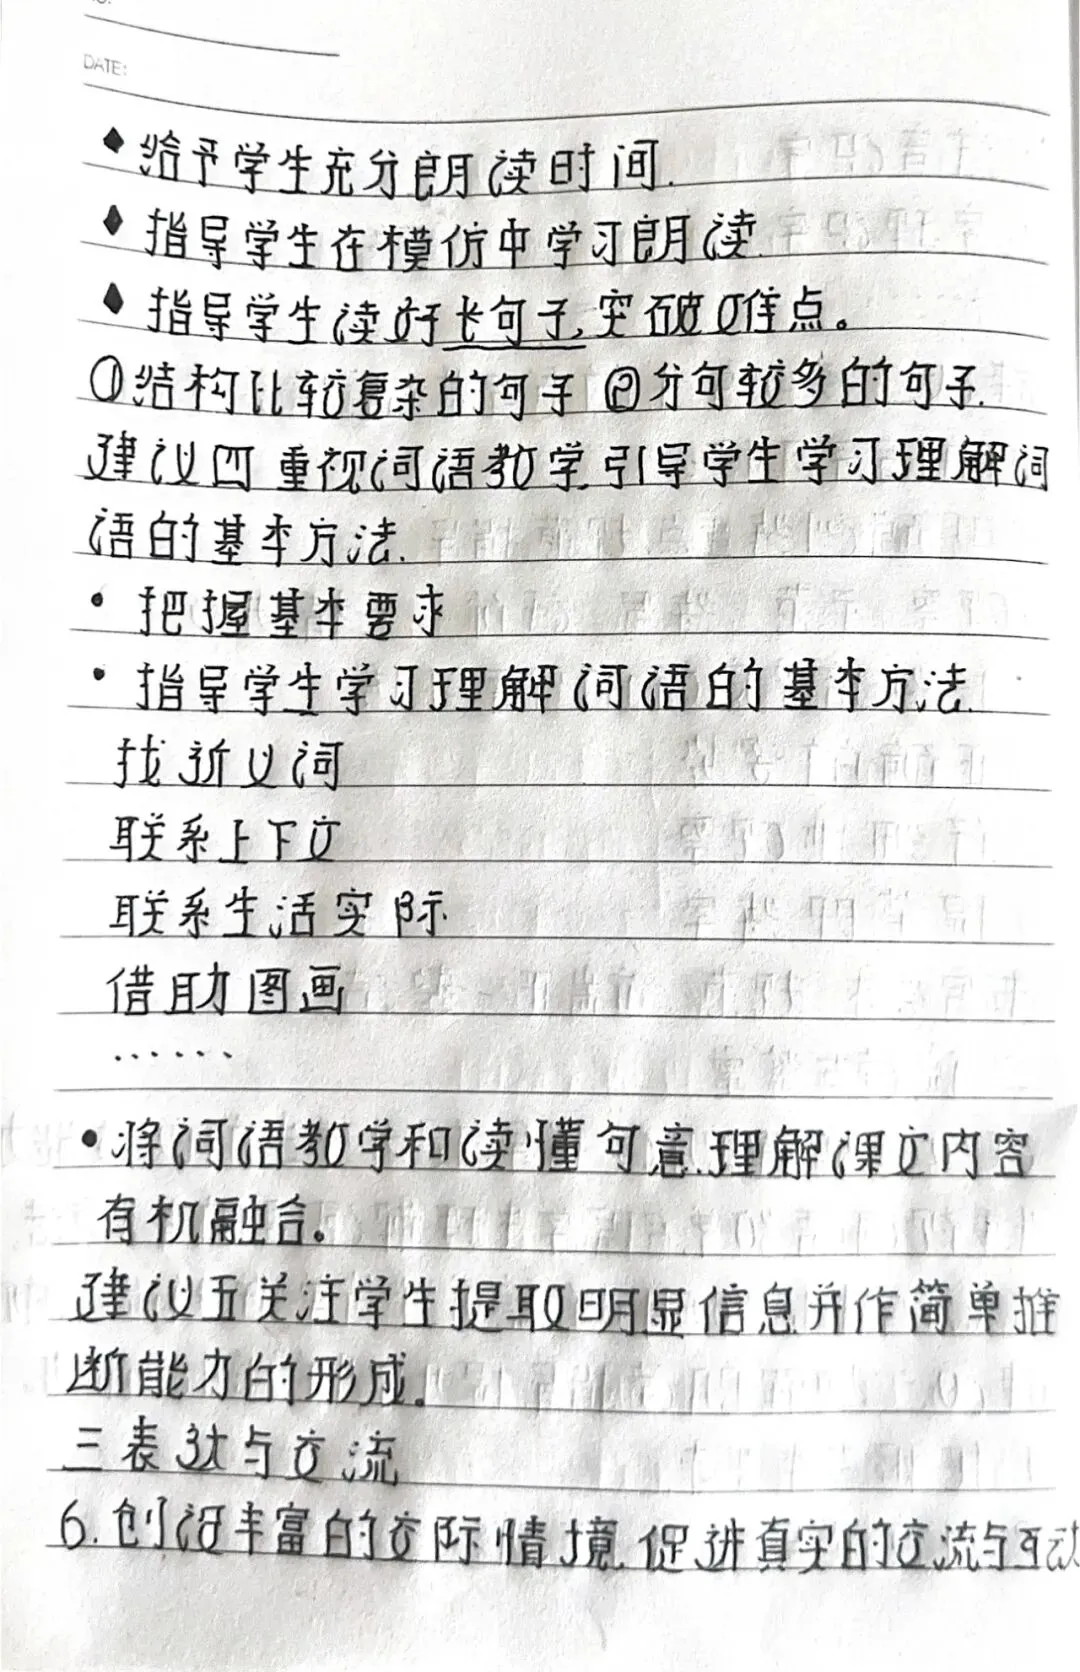 DATE:
◆给予学生充分朗读时间.
◆指导学生在模仿中学习朗读.
◆指导学生读好长句子,突破难点。
①结构比较复杂的句子 ②分句较多的句子.
建议四 重视词语教学,引导学生学习理解词
语的基本方法.
• 把握基本要求
• 指导学生学习理解词语的基本方法.
找近义词
联系上下文
联系生活实际
借助图画
......
•将词语教学和读懂句意.理解课文内容
有机融合。
建议五关注学生提取明显信息并作简单推
断能力的形成。
三表达与交流
6.创设丰富的交际情境.促进真实的交流与互动